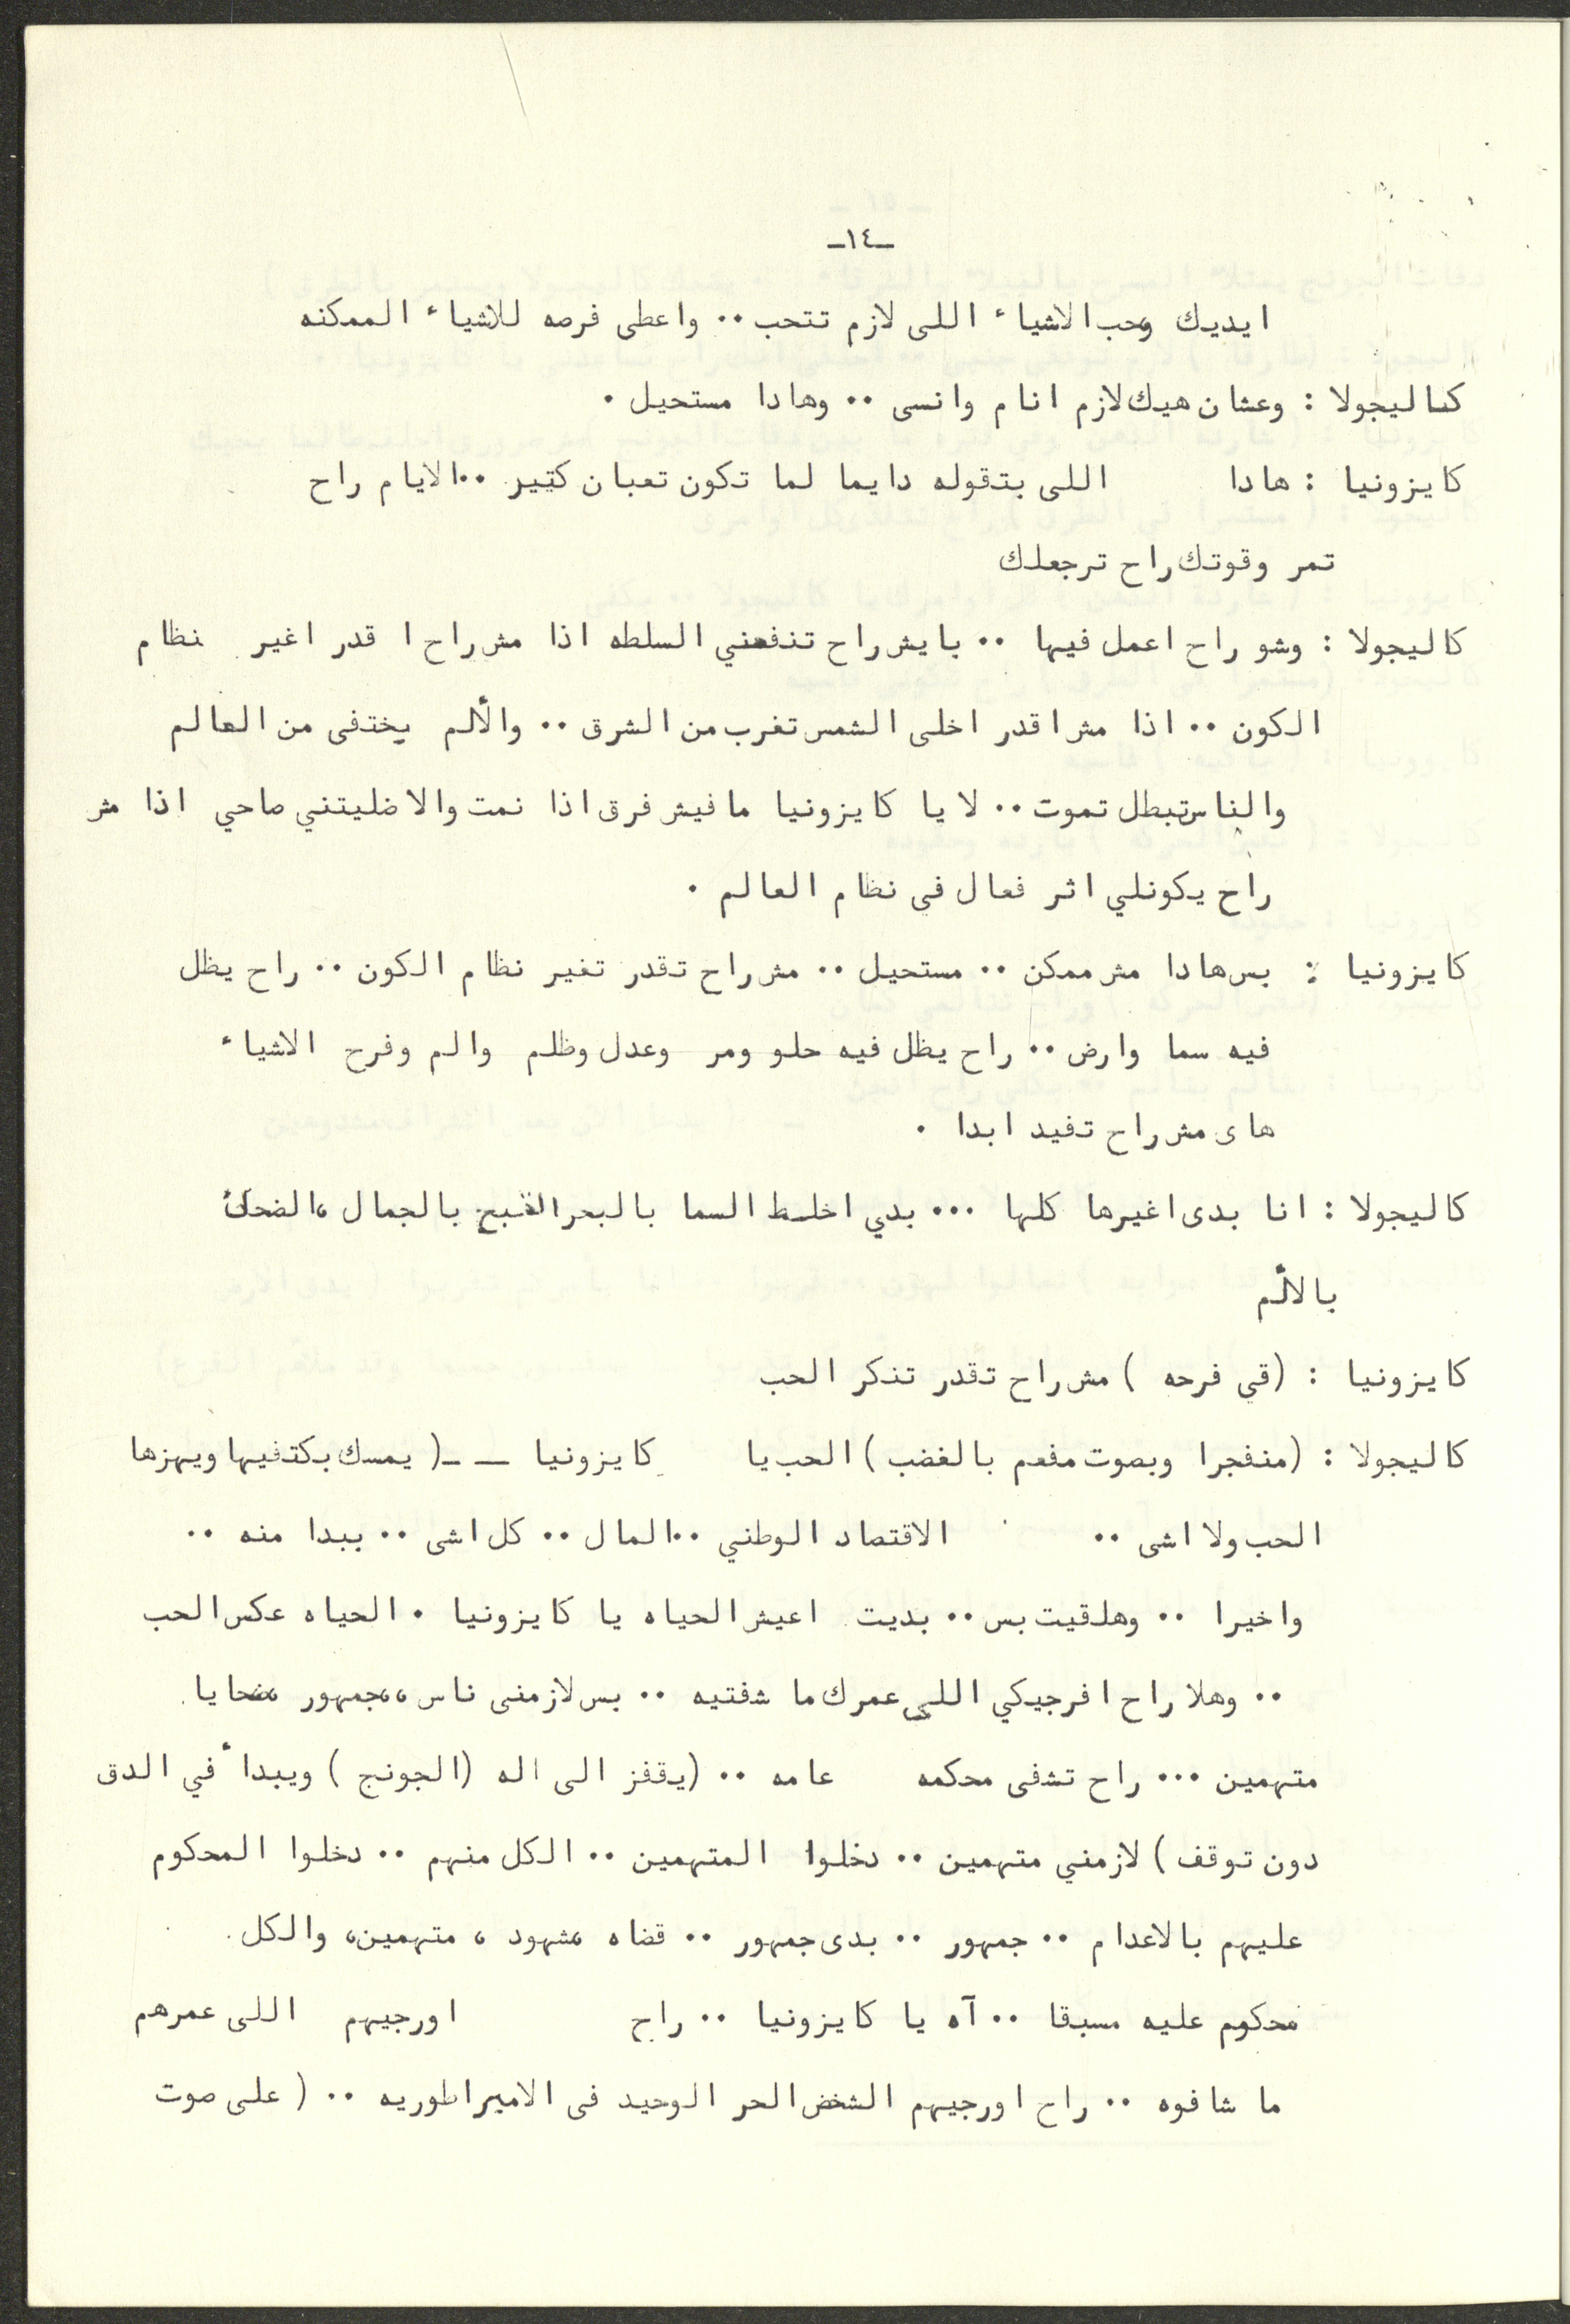 -١٤-
ايديك وحب الاشياء اللى لازم تتحب ٠٠ واعطى فرصه للاشياء الممكنه
كاليجولا : وعشان هيك لازم انام وانسى ٠٠ وهادا مستحيل ٠
كايزونيا : هادا اللى بتقوله دايما لما تكون تعبان كتير ٠٠ الايام راح
تمر وقوتك راح ترجعلك
كاليجولا : وشو راح اعمل فيها ٠٠ بايش راح تنفعني السلطه اذا مش راح اقدر اغير نظام
الكون ٠٠ اذا مش اقدر اخلى الشمس تغرب من الشرق ٠٠ والألم يختفى من العالم
والناس تبطل تموت ٠٠ لا يا كايزونيا مافيش فرق اذا نمت والا ضليتني صاحي اذا مش
راح يكونلي اثر فعال فى نظام العالم ٠
كايزونيا : بس هادا مش ممكن ٠٠ مستحيل ٠٠ مش راح تقدر تغير نظام الكون ٠٠ راح يظل
فيه سما وارض ٠٠ راح يظل فيه حلو ومر وعدل وظلم والم وفرح الاشياء
هاى مش راح تفيد ابدا ٠
كاليجولا : انا بدى اغيرها كلها ٠٠٠ بدي اخلط السما بالبحر القبح بالجمال ، الضحك
بالألم
كايزونيا : (قي فرحه ) مش راح تقدر تذكر الحب
كاليجولا : (منفجرا وبصوت مفعم بالغضب) الحب يا كايزونيا - -( يمسك بكتفيها ويهزها
الحب ولا اشى ٠٠ الاقتصاد الوطني ٠٠ المال ٠٠ كل اشى ٠٠ ببدا منه ٠٠
واخيرا ٠٠ وهلقيت بس ٠٠ بديت اعيش الحياه يا كايزونيا ٠ الحياه عكس الحب
٠٠ وهلا راح افرجيكي اللى عمرك ما شفتيه ٠٠ بس لازمنى ناس ، جمهور ، ضحايا
متهمين ٠٠٠ راح تشفى محكمه عامه ٠٠ (يقفز الى اله (الجونج ) ويبدأ في الدق
دون توقف ) لازمني متهمين ٠٠ دخلوا المتهمين ٠٠ الكل منهم ٠٠ دخلوا المحكوم
عليهم بالاعدام ٠٠ جمهور ٠٠ بدى جمهور ٠٠ قضاه ، شهود ، متهمين ، والكل
محكوم عليه مسبقا ٠٠ آه يا كايزونيا ٠٠ راح اورجيهم اللى عمرهم
ما شافوه ٠٠ راح اورجيهم الشخض الحر الوحيد فى الامبراطوريه ٠٠ ( على صوت